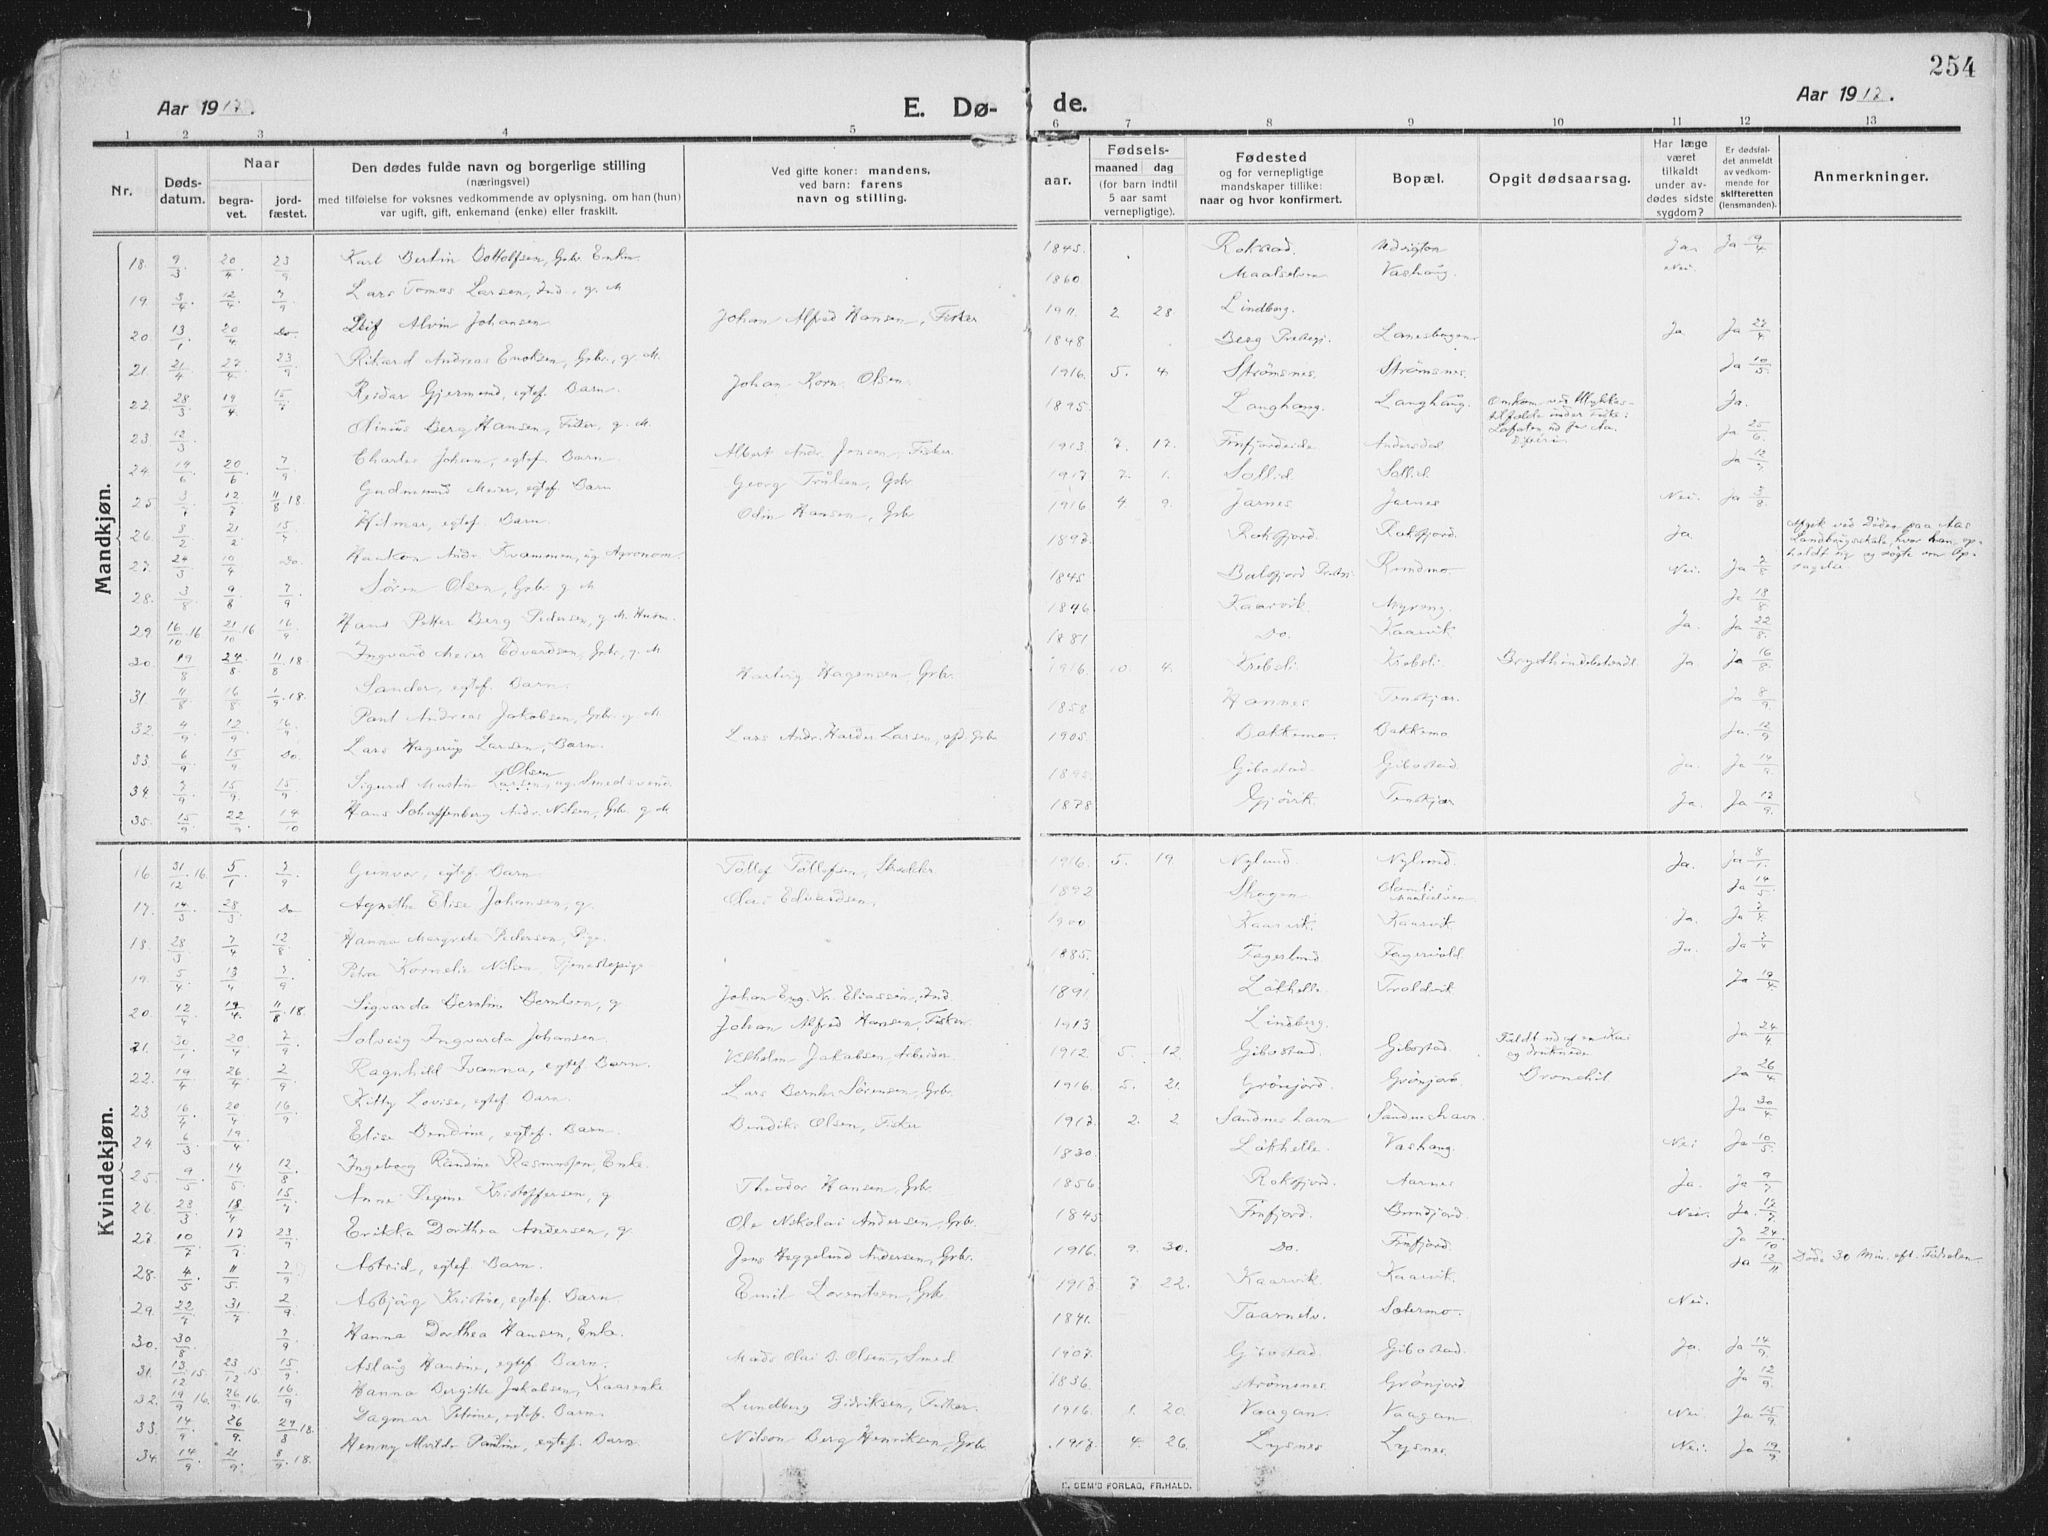 254
Aar 1917.
E. Dø-
de.
Aar 1917.
1 2 3 4 5 6 7 8 9 10 11 12 13
Nr.
Døds-
datum.
Naar
begra-
vet.
jord-
fæstet.
Den dødes fulde navn og borgerlige stilling
(næringsvei)
med tilføielse for voksnes vedkommende av oplysning, om han (hun)
var ugift, gift, enkemand (enke) eller fraskilt.
Ved gifte koner: mandens,
ved barn: farens
navn og stilling.
aar.
Fødsels-
maaned dag
(for barn indtil
5 aar samt
vernepligtige).
Fødested
og for vernepligtige
mandskaper tillike:
naar og hvor konfirmert.
Bopæl.
Opgit dødsaarsag.
Har læge
været
tilkaldt
under av-
dødes sidste
sygdom?
Er dødsfal-
det anmeldt
av vedkom-
mende for
skifteretten
(lensmanden).
Anmerkninger.
Mandkjøn.
18. 9/3 20/4 23/9 Karl Bertin Dottolfsen, Gbr. Enkm. 1845. Rokstad. Ja. Ja 19/4
19. 12/4 7/9 Lars Tomas Larsen, Ind. g. M 1860 Maalselven Vashaug. Nei.
20 13/1 20/4 Do Leif Alvin Johansen Johan Alfred Hansen, Fisker 1911. 2 28 Lindberg.
21. 21/4 27/4 23/9 Rikard Andreas Enoksen, Gbr., g. M. 1848 Berg Prestegj. Lanesbugen Ja Ja 27/4
22. 28/3 19/4 15/7 Reidar Gjermund, egtef. Barn. Johan Korn. Olsen. 1916. 5. 4. Strømsnes. Strømsnes. Ja 10/5
23 12/3 Olinius Berg Hansen, Fisker, g. M. 1895. Langhaug. Langhaug. Omkom ved Ulykkes- Ja.
24 19/6 20/6 7/9 Charles Johan, egtef. Barn Albert Andr. Jensen, Fisker. 1913 7. 17. Finfjordeide Andersdal Ja 25/6
25 3/7 12/7 11/8.18. Gudmund Meier, egtef. Barn Georg Trulsen, Gbr 1917 2. 1. Sollid Sollid Ja 12/7
26. 3/2 21/2 15/7 Hilmar, egtef. Barn. Odin Hansen, Gbr 1916 4. 9. Jarnes Jarnes Nei. Ja 3/8
27. 24/3 10/4 Do. Haakon Andr. Kvammen, ug. Agronom. 1892. Roksfjord. Roksfjord. Ja. Afgik ved Døden paa Aas
Landbrugsskole, hvor han op-
28. 3/8 9/8 7/9 Søren Olsen, Gbr. g. M. 1845 Balsfjord Prestgj. Rundmo. Nei. Ja 7/8
29 16/10.16 21/10 16 16/9 Hans Petter Berg Pedersen, g. M. Husm. 1846. Kaarvik. Myreng. Ja 18/8
30. 19/8 24/8 11/8.18. Ingvard Meier Edvardsen, Gbr., g. M 1881 Do. Kaarvik Ja. Ja 22/8.
31 11/8 16/8 1/9.18. Sander, egtef. Barn. Hartvig Hagensen Gbr. 1916. 10. 4. Krebsli. Krebsli. Brysthindebetændt. Ja Ja 16/8
32. 4/9 12/9 16/9. Paul Andreas Jakobsen, Gbr. g. M. 1858 Hannes Tenskjær. Ja 8/9
33. 6/9 15/9 Do. Lars Hagerup Larsen, Barn. Lars Andr. Harder Larsen, afd. Gbr 1905. Bakkemo. Bakkemo Ja. 12/9
Olsen
34. 7/9 15/9. 15/9 Sigurd Martin Larsen, ug. Smedsvend. 1895. Gibostad. Gibostad. Ja. Ja 14/9.
35. 15/9 22/9. 14/10 Hans Schaffenberg Andr. Nilsen, Gbr g. M 1878 Gjøvik. Tenskjær Ja. Ja 17/9.
Kvindekjøn.
16. 31/12.16. 5/1. 7/9. Gunvor, egtef. Barn Tollef Tollefsen, Skrædder. 1916. 5. 19. Nylund. Nylund. Ja. Ja 8/1.
17. 14/3 28/3. Do Agnethe Elise Johansen, g. Olai Edvardsen. 1892 Skogen Ja 14/5.
18. 28/3 7/4 12/8. Hanna Margrete Pedersen, Pige. 1900 Kaarvik Kaarvik Ja. Ja 7/4.
19. 5/4 13/4 7/9. Petra Kornelie Nilsen, Tjenestepige 1885. Fagerlund Fagervold. Ja. Ja 7/4
20. 12/4 19/4. 11/8.18. Sigvarda Berntine Berntsen, g. Johan Eng. Kr. Eliassen, Ind. 1891 Løkhelle. Troldvik Ja 19/4.
21. 30/1 20/4 7/9. Solveig Ingvarda Johansen. Johan Alfred Hansen, Fisker. 1913 Lindberg.
22. 19/4 26/4. 2/9. Ragnhild Ivanna, egtef Barn. Vilhelm Jakobsen Arbeider. 1912. 5. 12. Gibostad. Gibostad. Faldt ud af en Kai
og druknede Ja 24/4
23 16/4. 20/4 16/9 Kitty Lovise, egtef. Barn. Lars Bernh. Sørensen, Gbr. 1916. 5. 21. Grønjord. Grønjord. Bronchit Ja 26/4
24. 6/3. 19/4 Elise Bendine, egtef. Barn. Bendik Olsen, Fisker 1917. 2. 2. Sandneshavn Sandneshavn. Ja 30/4
25. 9/5 14/5. 12/8 Ingeborg Randine Rasmussen, Enke. 1830. Løkhelle. Vashaug. Nei. Ja 10/5.
26. 23/3 18/4 15/7 Anne Regine Kristoffersen, g Theodor Hansen, Gbr. 1856 Roksfjord. Aarnes Ja. Ja 9/7
27. 10/7 17/7. 23/9 Erikka Dorthea Andersen, g. Ole Nikolai Andersen, Gbr. 1845 Finfjord. Nei. Ja. 17/7
28. 4/5 11/5. 7/9. Astrid, egtef. Barn. Jens Heggelund Andersen, Gbr. 1916. 9. 30. Do. Finfjord. Ja 24/10
29. 22/7 31/7 2/9 Asbjørg Kristine, egtef. Barn Emil Lorentsen, Gbr. 1917 7 22. Kaarvik. Kaarvik. Ja 12/11 Døde 30 Min. eft. Fødselen.
30. 30/8 7/9 Hanna Dorthea Hansen, Enke. 1841. Taarnelv. Sætermo. Nei.
31. 13/12.15. 23/12.15. 15/9. Aslaug Hansine, egtef. Barn. Mads Olai B. Olsen, Smed 1907. Gibostad Gibostad. Ja. Ja 14/9.
32. 19/9 16. 26/9 16. 16/9 Hanna Bergitte Jakobsen, Kaarenke 1836. Strømsnes Grønjord Ja 12/9.
33. 14/9. 26/9. 18 Dagmar Petrine, egtef. Barn. Lundberg Didriksen, Fisker. 1916. 1. 20. Vaagan. Vaagan Nei Ja 15/9
34 14/9 21/9. 8/9.18. Henny Pauline, egtef. Barn Nilson Berg Henriksen, Gbr. 1917 4. 26. Lysnes Lysnes. Nei. Ja 19/9
SEM'S FORLAG, FR.HALD.